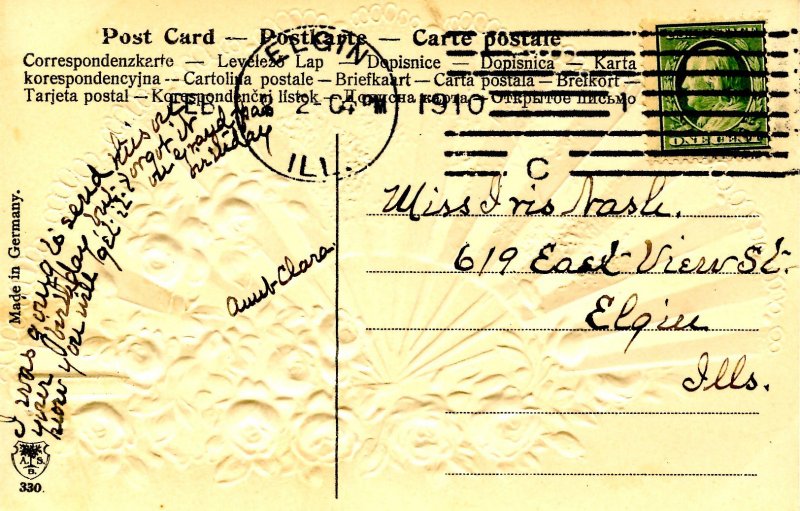 Post Card — Postkarte — Carte postale
Correspondenzkarte — Levelező Lap — Dopisnice — Dopisnica — Karta
korespondencyjna -- Cartolina postale — Briefkaart — Carta postala — Brefkort —
Tarjeta postal — Korespondenční lístok — Дописна карта — Открытое письмо
ELGIN
FEB 2 PM 1910
ILL.
C
ONE CENT
Made in Germany.
I was going to send this on
your birthday but forgot it
know you will get it
on grand mas
birthday
Aunt Clara.
Miss Iris Nash.
619 East View St.
Elgin
Ills.
A. S.
B.
330.